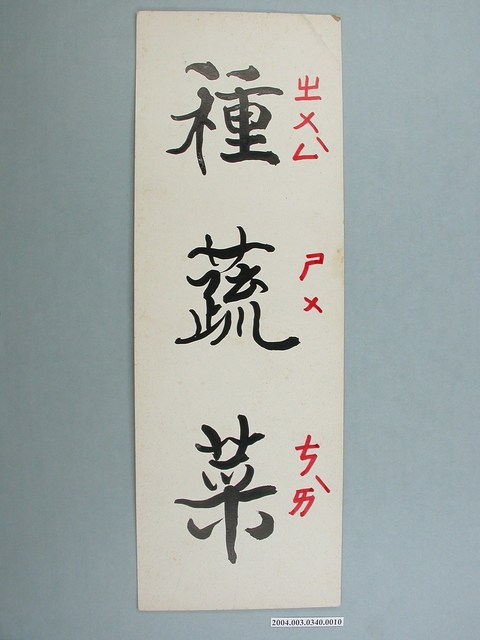 種 ㄓㄨㄥˋ
蔬 ㄕㄨ
菜 ㄘㄞˋ
2004.003.0340.0010